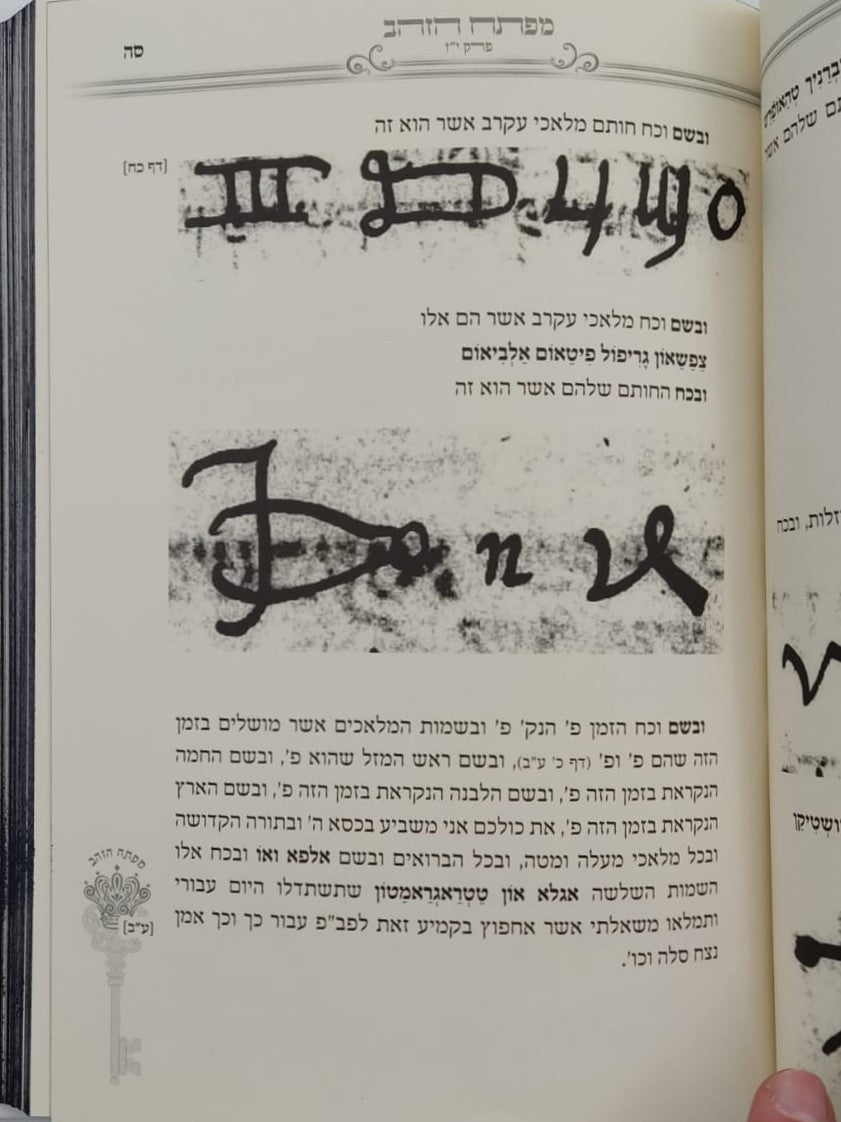 מפתח הזהב
פרק י"ז
סה
ובשם וכח חותם מלאכי עקרב אשר הוא זה
[דף כח]
ובשם וכח מלאכי עקרב אשר הם אלו
צַפַשַאוֹן גָרִיפוֹל פִיטַאוֹם אַלְבִיאוֹם
ובכח החותם שלהם אשר הוא זה
ובשם וכח הזמן פ' הנק' פ' ובשמות המלאכים אשר מושלים בזמן
הזה שהם פ' ופ' (דף כ' ע"ב), ובשם ראש המזל שהוא פ', ובשם החמה
הנקראת בזמן הזה פ', ובשם הלבנה הנקראת בזמן הזה פ', ובשם הארץ
הנקראת בזמן הזה פ', את כולכם אני משביע בכסא ה' ובתורה הקדושה
ובכל מלאכי מעלה ומטה, ובכל הברואים ובשם אלפא ואו ובכח אלו
השמות השלשה אגלא אוֹן טֶטְרַאגְרַאמַטוֹן שתשתדלו היום עבורי
ותמלאו משאלתי אשר אחפוץ בקמיע זאת לפב"פ עבור כך וכך אמן
נצח סלה וכו'.
מפתח הזהב
[ע"ב]
זלות, ובכח